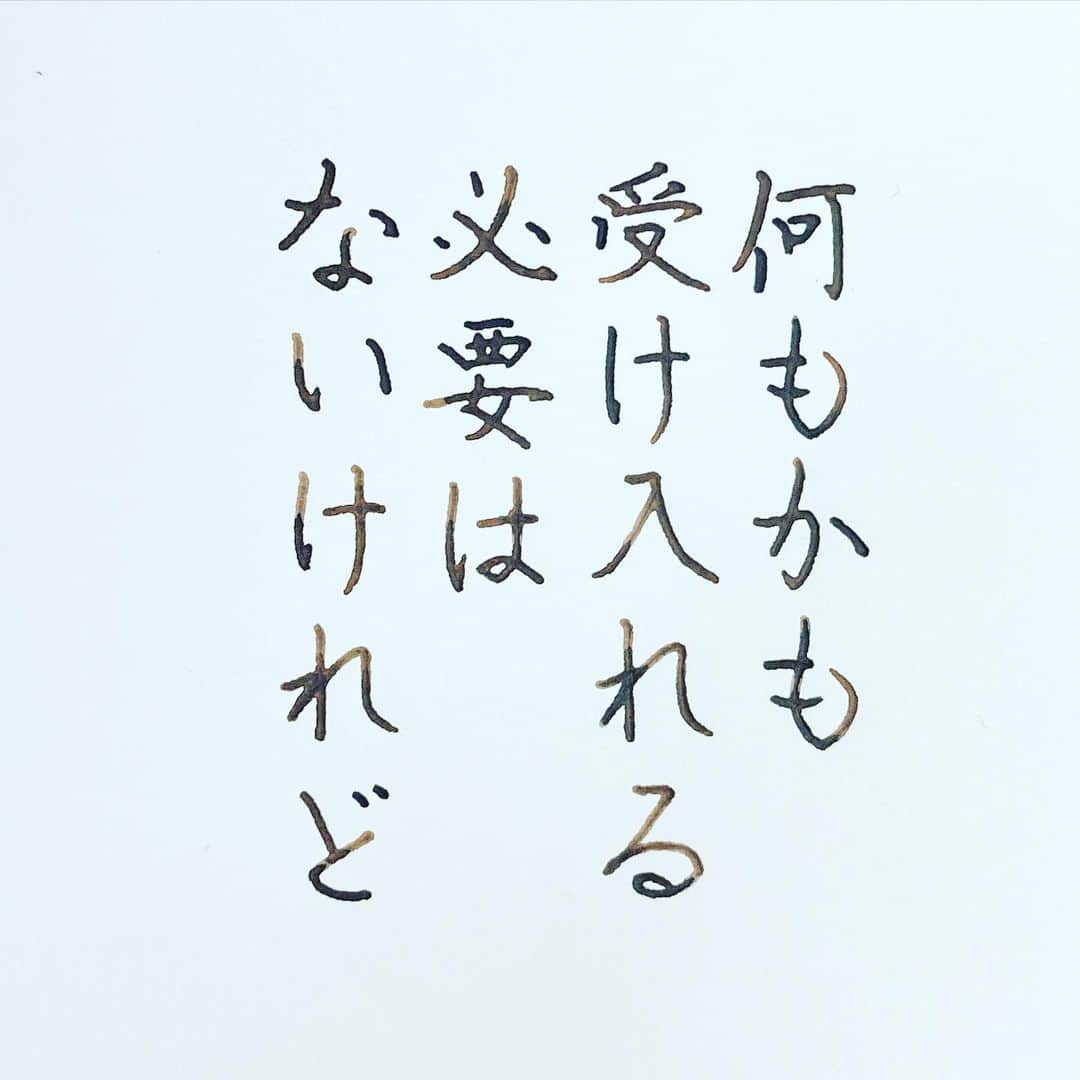 何もかも
受け入れる
必要は
ないけれど